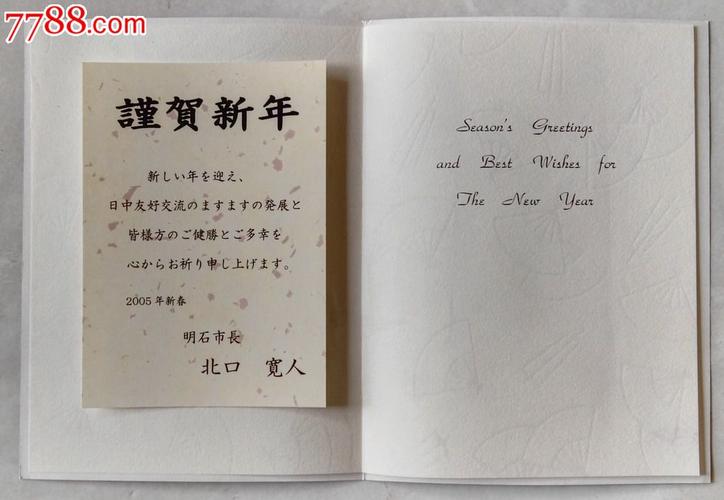 7788.com
謹賀新年
新しい年を迎え、
日中友好交流のますますの発展と
皆様方のご健勝とご多幸を
心からお祈り申し上げます。
2005年新春
明石市長
北口 寛人
Season's Greetings
and Best Wishes for
The New Year